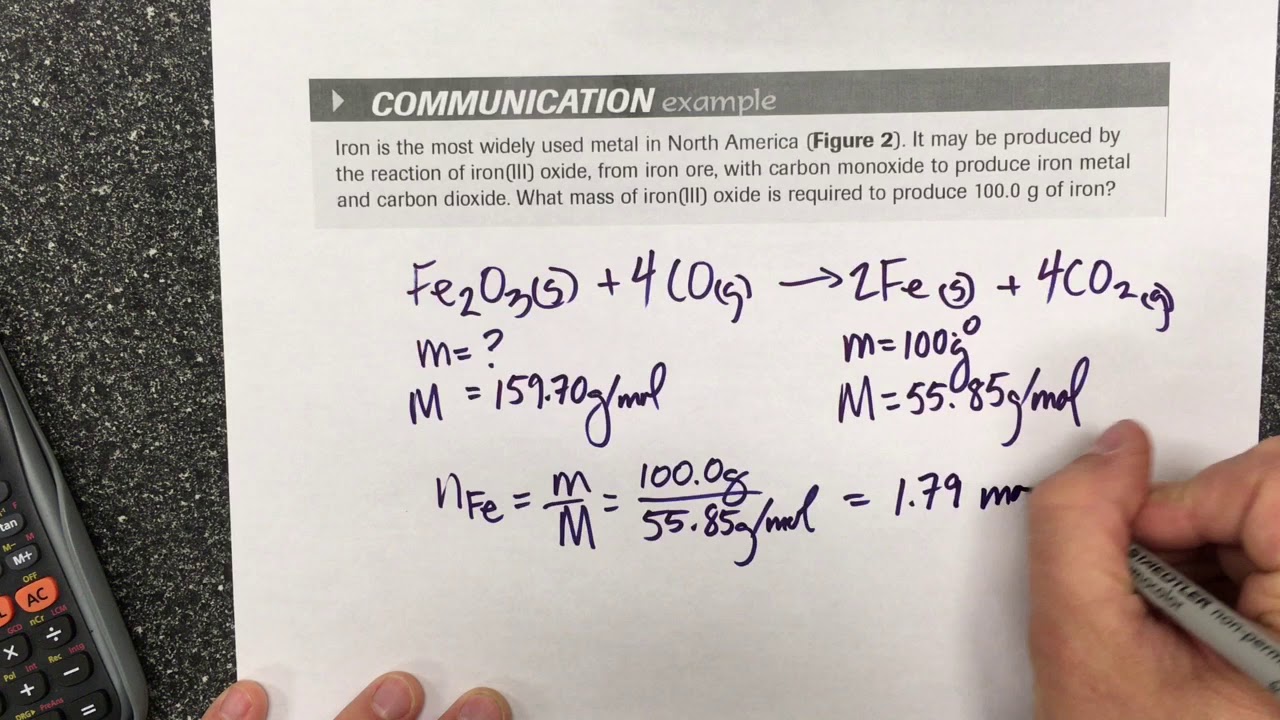 COMMUNICATION example
Iron is the most widely used metal in North America (Figure 2). It may be produced by
the reaction of iron(III) oxide, from iron ore, with carbon monoxide to produce iron metal
and carbon dioxide. What mass of iron(III) oxide is required to produce 100.0 g of iron?
Fe₂O₃(s) + 4CO(g) → 2Fe(s) + 4CO₂(g)
m = ? m = 100g
M = 159.70g/mol M = 55.85g/mol
nFe = m/M = 100.0g/55.85g/mol = 1.79 mo
STAEDTLER non perm
tan
M– M
M+
OFF
AC
GCD nCr LCM
× ÷
Pol Int Rec Intg
+ −
DRG▸ PreAns
=